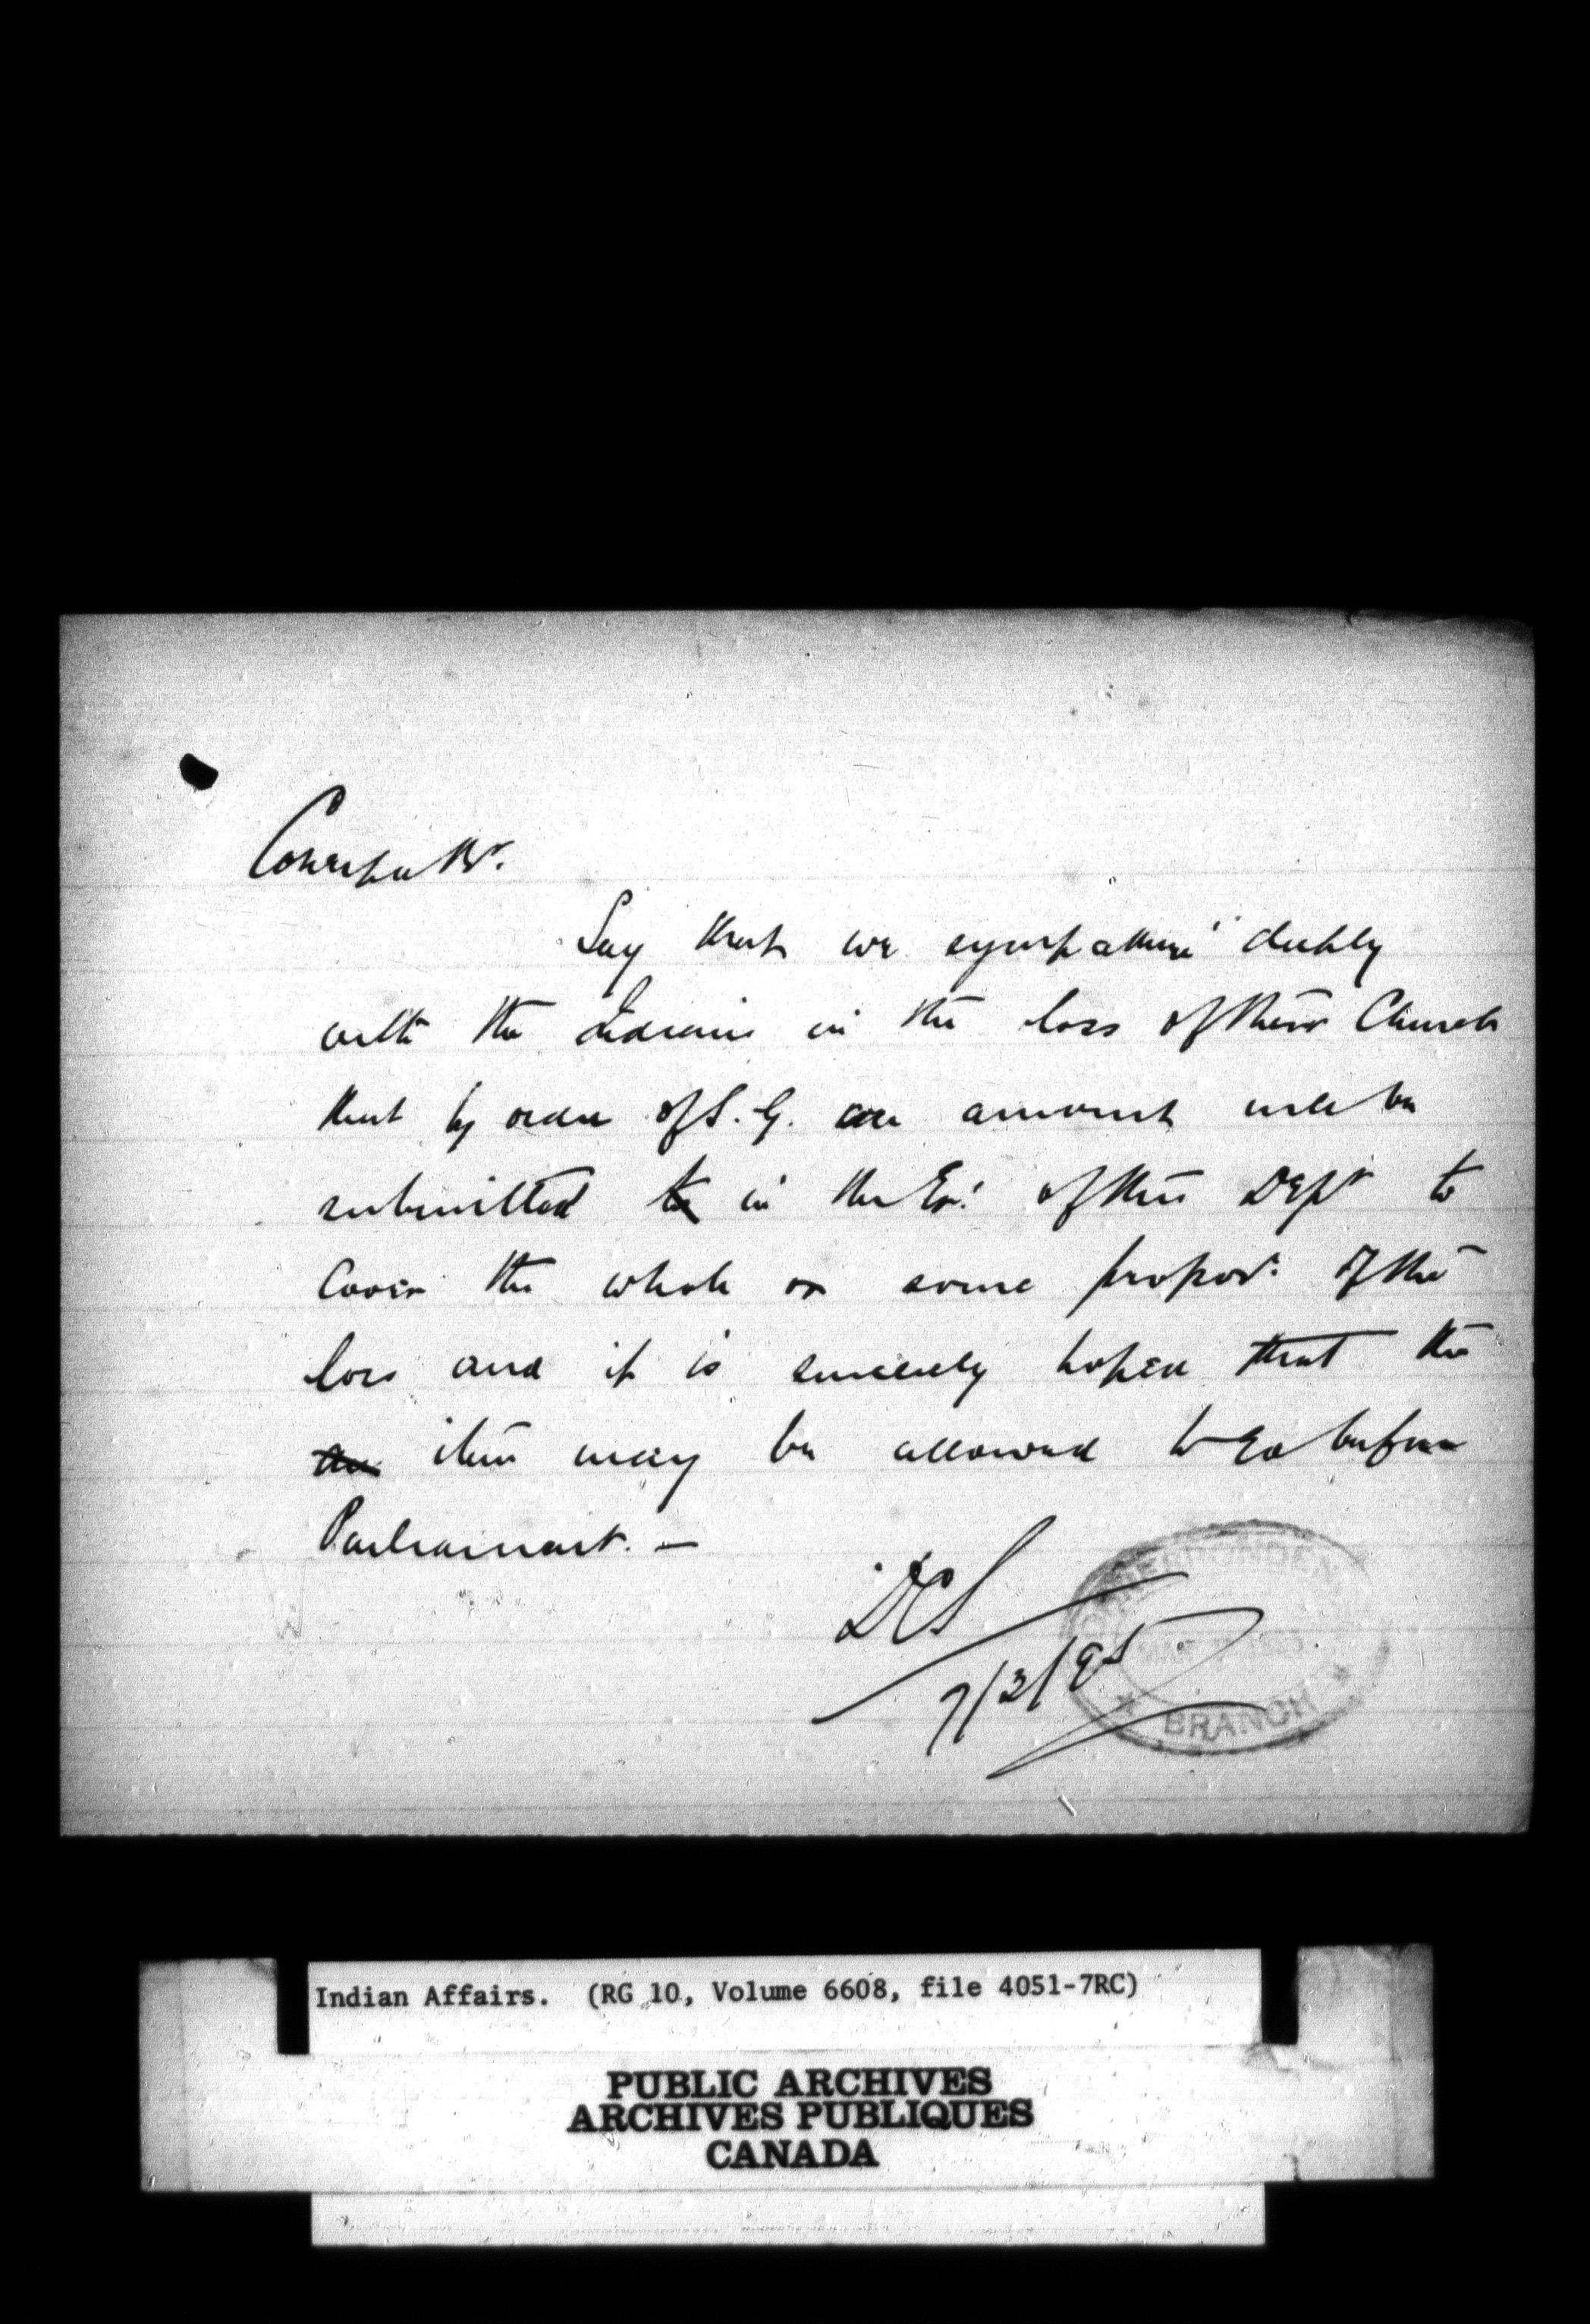 Say that we sympathize deeply
with the Indians in the loss of their Church
that by order of S. G. an amount will be
submitted to in the Es! of this Dept to
Cover the whole or some propor! of the
loss and it is sincerely hoped that the
an item may be allowed to go before
Parliament. —
DCS
7/3/95
CORRESPONDEN
BRANCH
Indian Affairs. (RG 10, Volume 6608, file 4051-7RC)
PUBLIC ARCHIVES
ARCHIVES PUBLIQUES
CANADA